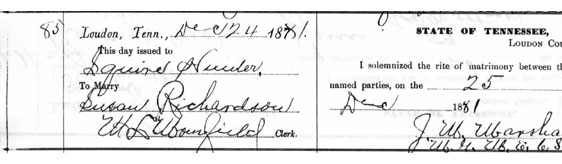 85
Loudon, Tenn., Dec 24 1881.
This day issued to
Squire Hunter,
To Marry
Susan Richardson
Clerk.
STATE OF TENNESSEE,
LOUDON COU
I solemnized the rite of matrimony between th
named parties, on the 25
Dec 1881
J. W. Marsha